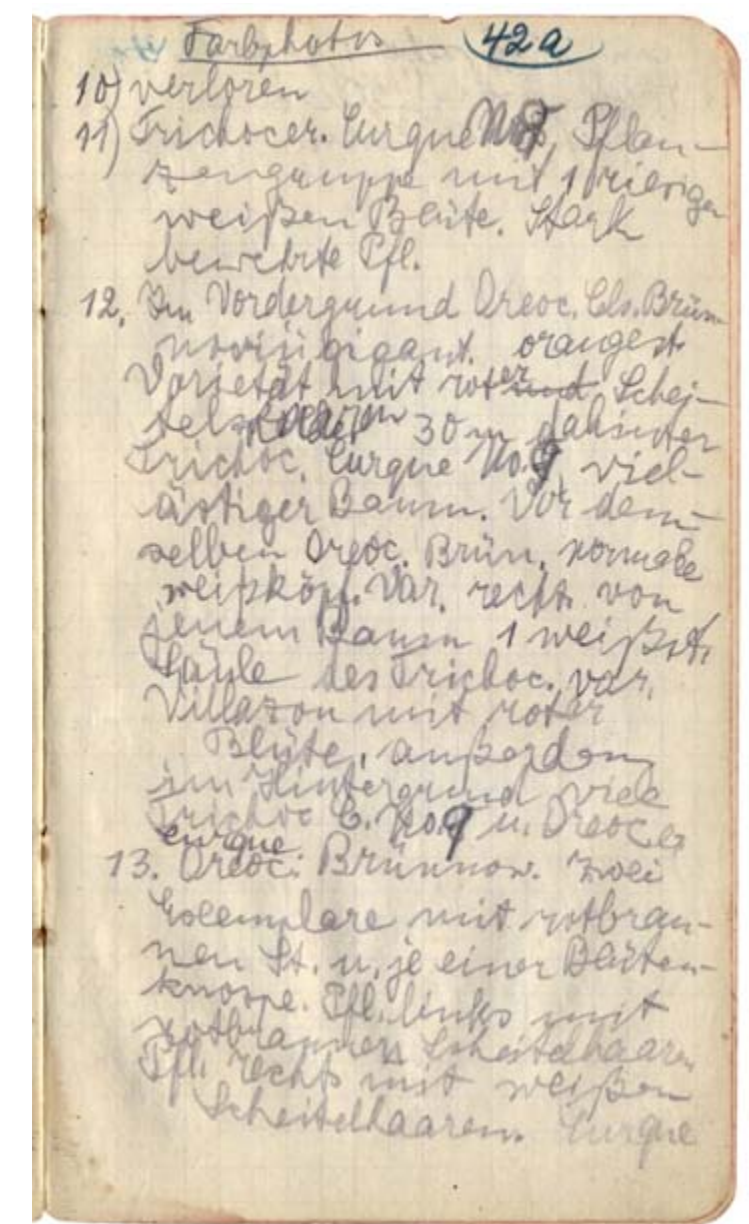 Farbphotos 42a
10) verloren
11) Trichocer. Curque No 9, Pflan-
zengruppe mit 1 riesigen
weißen Blüte. Stark
bewehrte Pfl.
12. Im Vordergrund Oreoc. Cls. Brün-
nowii gigant. orangest.
Varietät mit roter Schei-
tel 30 m dahinter
Trichoc. Curque No. 9 viel-
ästiger Baum. Vor dem-
selben Oreoc. Brün. normale
weißköpf. Var. rechts von
jenem Baum 1 weißst.
Säule des Trichoc. var.
Villazon mit roter
Blüte, außerdem
im Hintergrund viele
Trichoc C. No. 9 u. Oreoc
curque
13. Oreoc. Brünnow. zwei
Exemplare mit rotbrau-
nen St. u. je einer Blüten-
knospe. Pfl. links mit
rotbraunen Scheitelhaaren
Pfl. rechts mit weißen
Scheitelhaaren. Curque